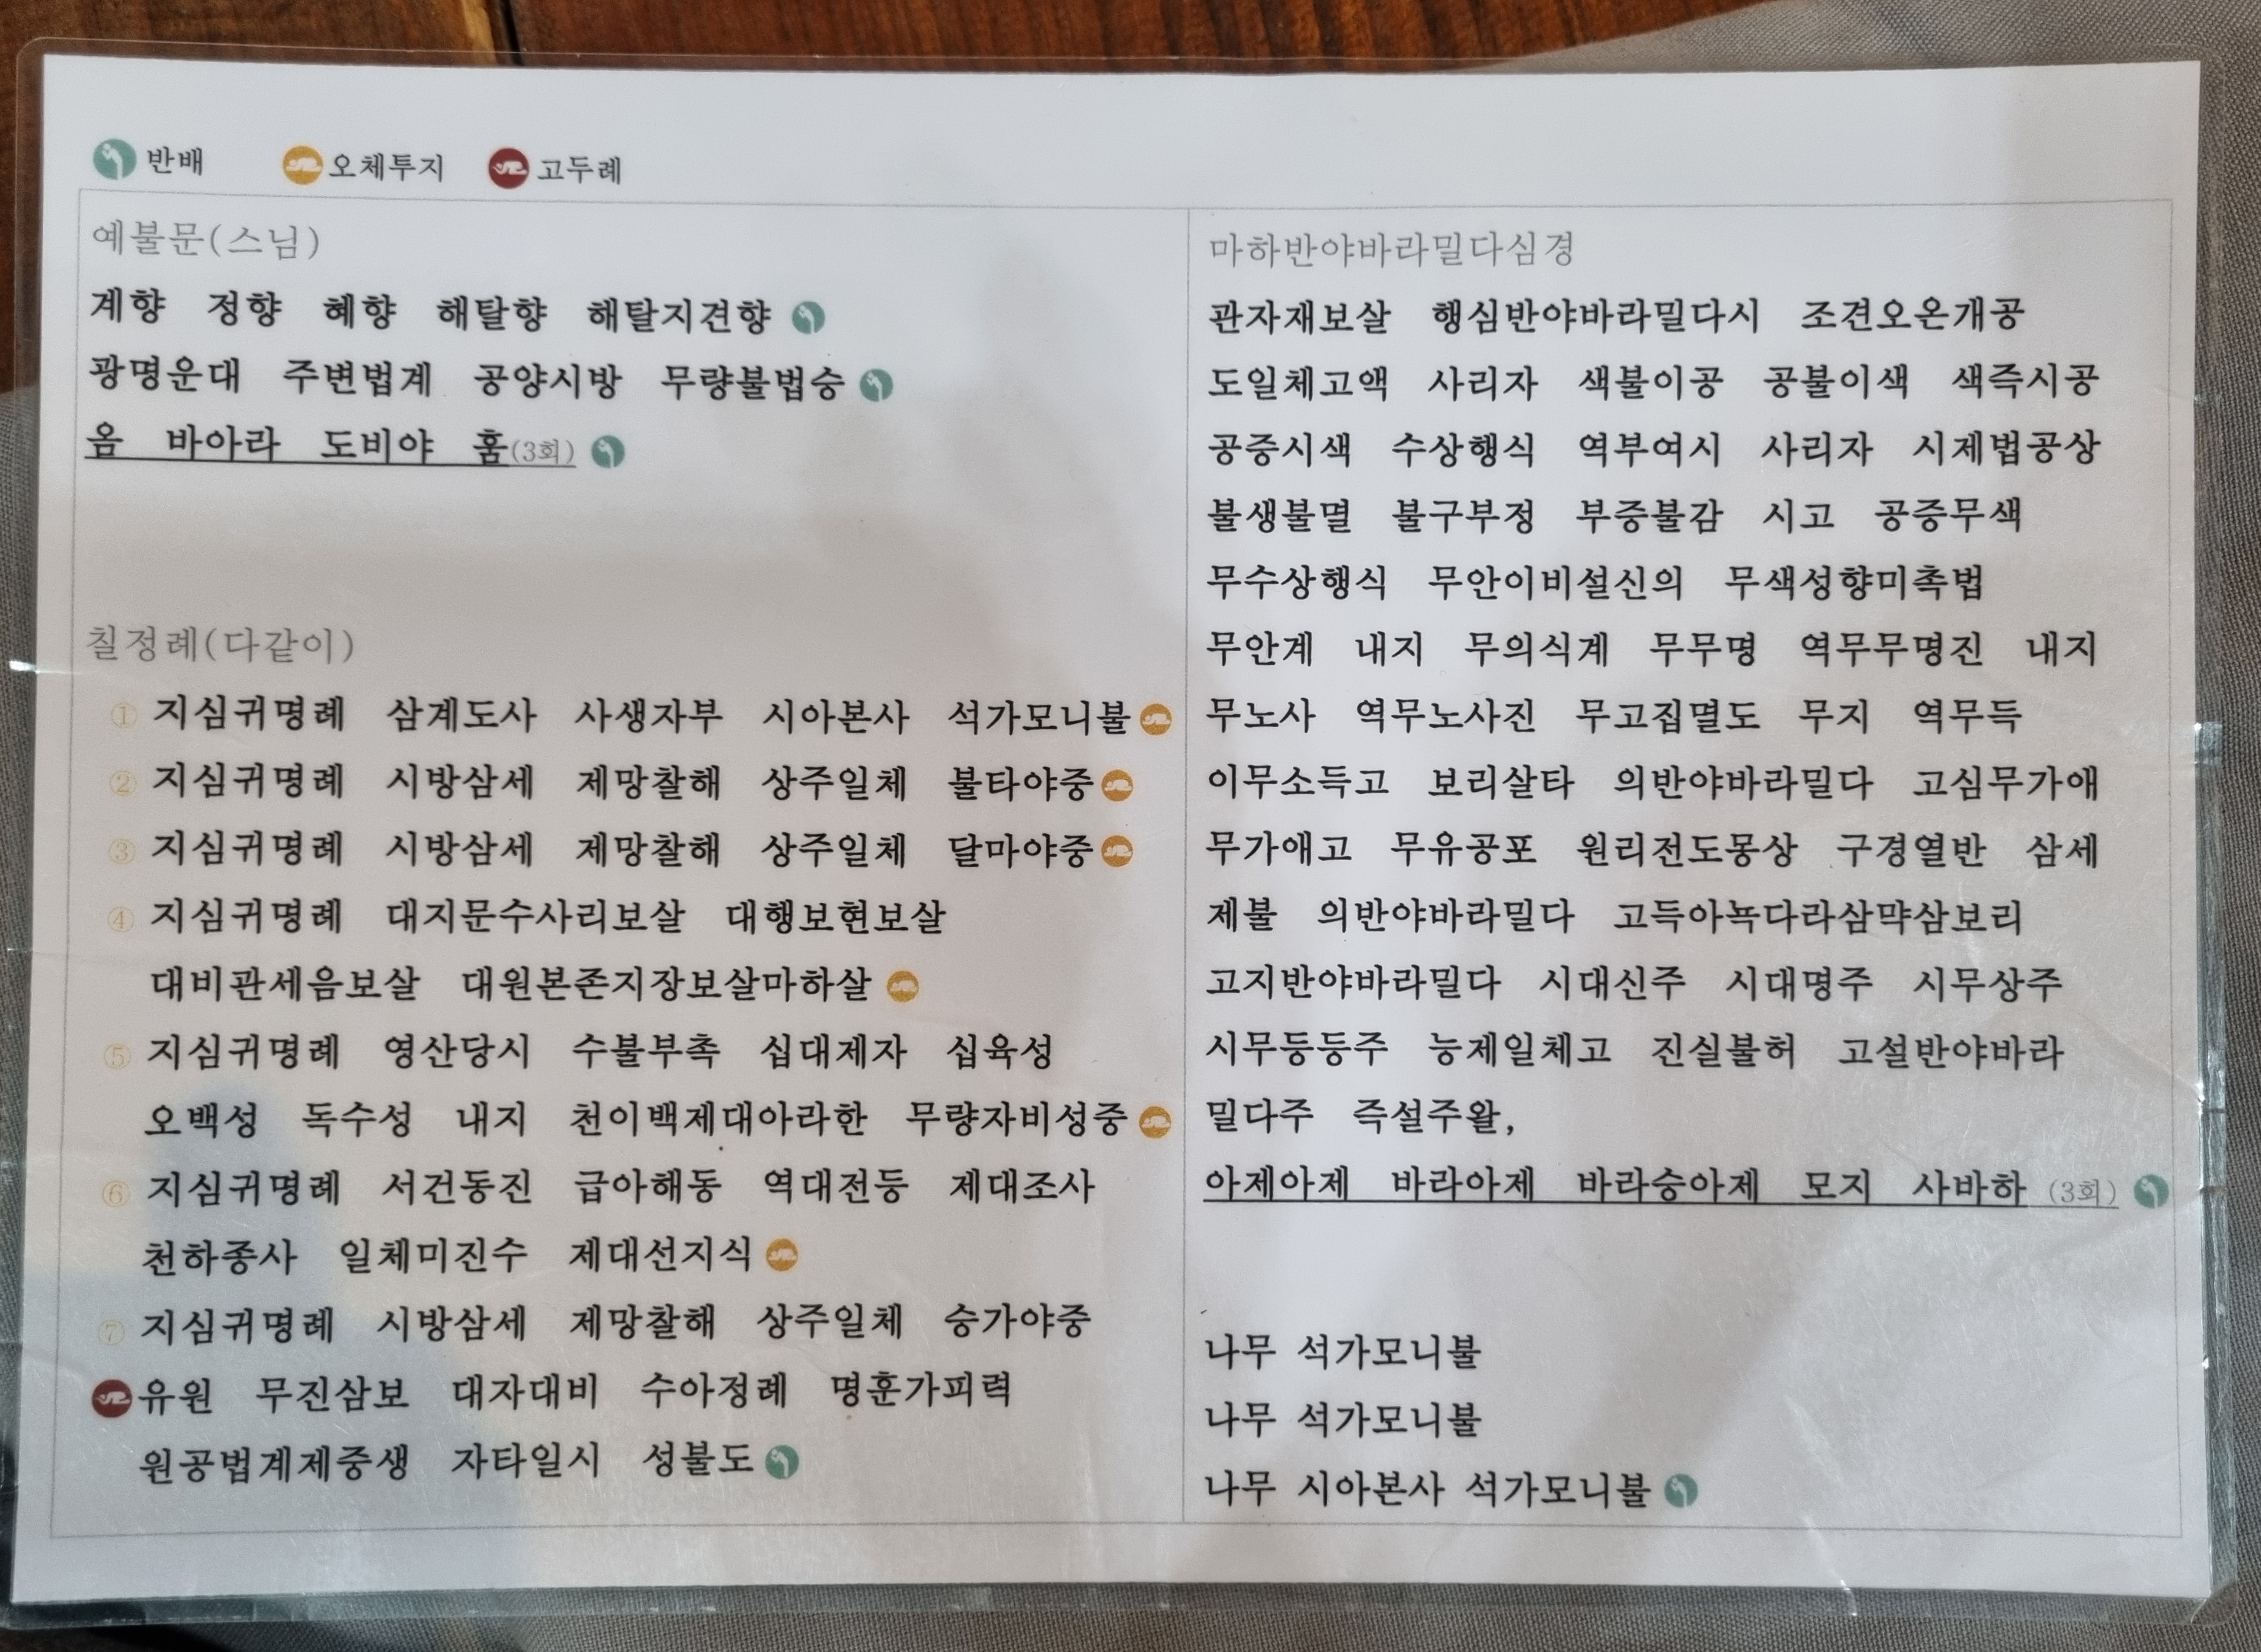 반배 오체투지 고두례
예불문(스님)
계향 정향 혜향 해탈향 해탈지견향
광명운대 주변법계 공양시방 무량불법승
옴 바아라 도비야 훔(3회)
칠정례(다같이)
① 지심귀명례 삼계도사 사생자부 시아본사 석가모니불
② 지심귀명례 시방삼세 제망찰해 상주일체 불타야중
③ 지심귀명례 시방삼세 제망찰해 상주일체 달마야중
④ 지심귀명례 대지문수사리보살 대행보현보살
대비관세음보살 대원본존지장보살마하살
⑤ 지심귀명례 영산당시 수불부촉 십대제자 십육성
오백성 독수성 내지 천이백제대아라한 무량자비성중
⑥ 지심귀명례 서건동진 급아해동 역대전등 제대조사
천하종사 일체미진수 제대선지식
⑦ 지심귀명례 시방삼세 제망찰해 상주일체 승가야중
유원 무진삼보 대자대비 수아정례 명훈가피력
원공법계제중생 자타일시 성불도
마하반야바라밀다심경
관자재보살 행심반야바라밀다시 조견오온개공
도일체고액 사리자 색불이공 공불이색 색즉시공
공증시색 수상행식 역부여시 사리자 시제법공상
불생불멸 불구부정 부증불감 시고 공증무색
무수상행식 무안이비설신의 무색성향미촉법
무안계 내지 무의식계 무무명 역무무명진 내지
무노사 역무노사진 무고집멸도 무지 역무득
이무소득고 보리살타 의반야바라밀다 고심무가애
무가애고 무유공포 원리전도몽상 구경열반 삼세
제불 의반야바라밀다 고득아뇩다라삼먁삼보리
고지반야바라밀다 시대신주 시대명주 시무상주
시무등등주 능제일체고 진실불허 고설반야바라
밀다주 즉설주왈,
아제아제 바라아제 바라승아제 모지 사바하 (3회)
나무 석가모니불
나무 석가모니불
나무 시아본사 석가모니불